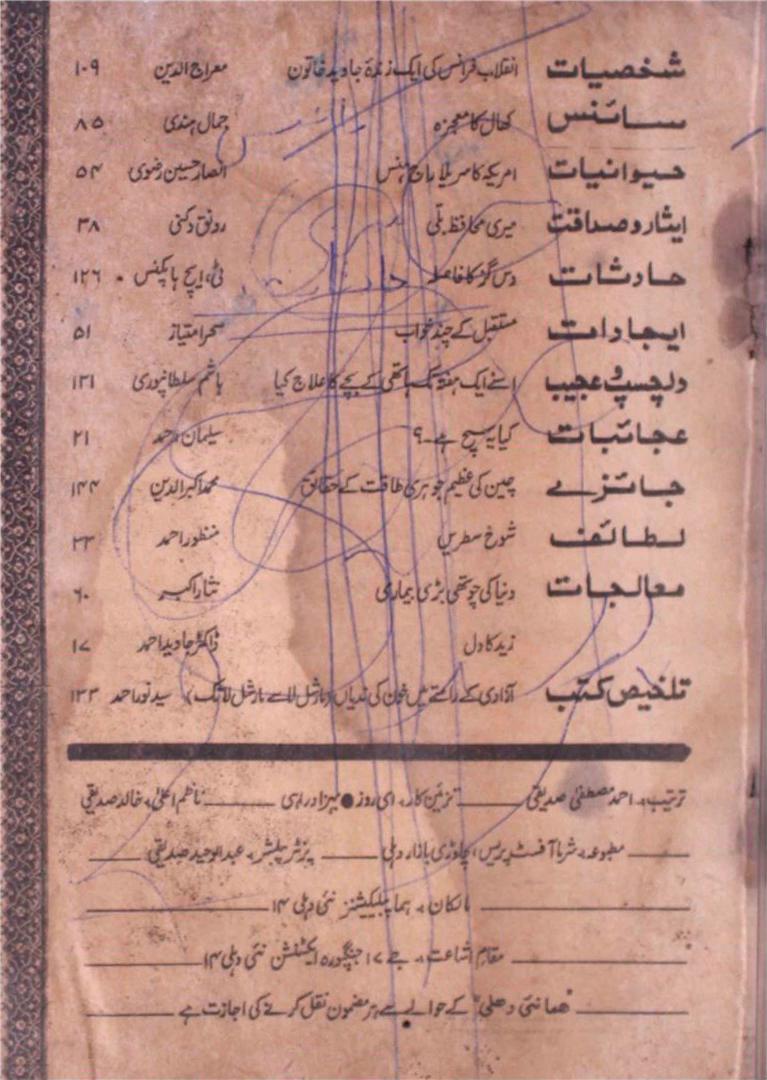 شخصیات انقلاب فرانس کی ایک زندۂ جاوید خاتون معراج الدین ۱۰۹
سائنس کھال کا معجزہ جمال ہندی ۸۵
حیوانیات امریکہ کا سریلا راج ہنس انصار حسین رضوی ۵۴
ایثار و صداقت میری محافظ بلّی رونق دکنی ۳۸
حادثات دس گز کا فاصلہ ٹی، ایچ ہاپکنس ۱۲۶
ایجادات مستقبل کے چند خواب سحر امتیاز ۵۱
دلچسپ و عجیب اسنے ایک ہفتہ تک ہاتھی کے بچے کا علاج کیا ہاشم سلطانپوری ۱۳۱
عجائبات کیا یہ سچ ہے۔؟ سلیمان احمد ۲۱
جائزے چین کی عظیم جوہری طاقت کے حقائق محمد اکبر الدین ۱۴۴
لطائف شوخ سطریں منظور احمد ۳۳
معالجات دنیا کی چوتھی بڑی بیماری نثار اکبر ۶۰
زید کا دل ڈاکٹر جاوید احمد ۱۷
تلخیص کتب آزادی کے راستے میں خون کی ندیاں (مارشل لا سے مارشل لا تک) سید نور احمد ۱۳۳
ترتیب، احمد مصطفیٰ صدیقی تزئین کار، ای روز ● میرزا در اسی ناظم اعلیٰ، خالد صدیقی
مطبوعہ، شرما آفسٹ پریس، چاوڑی بازار دہلی پرنٹر پبلشر، عبدالوحید صدیقی
مالکان، ہما پبلیکیشنز نئی دہلی ۱۴
مقام اشاعت، جے ۱۷ جنگپورہ ایکسٹنشن نئی دہلی ۱۴
"ھما نئی دھلی" کے حوالے سے ہر مضمون نقل کرنے کی اجازت ہے